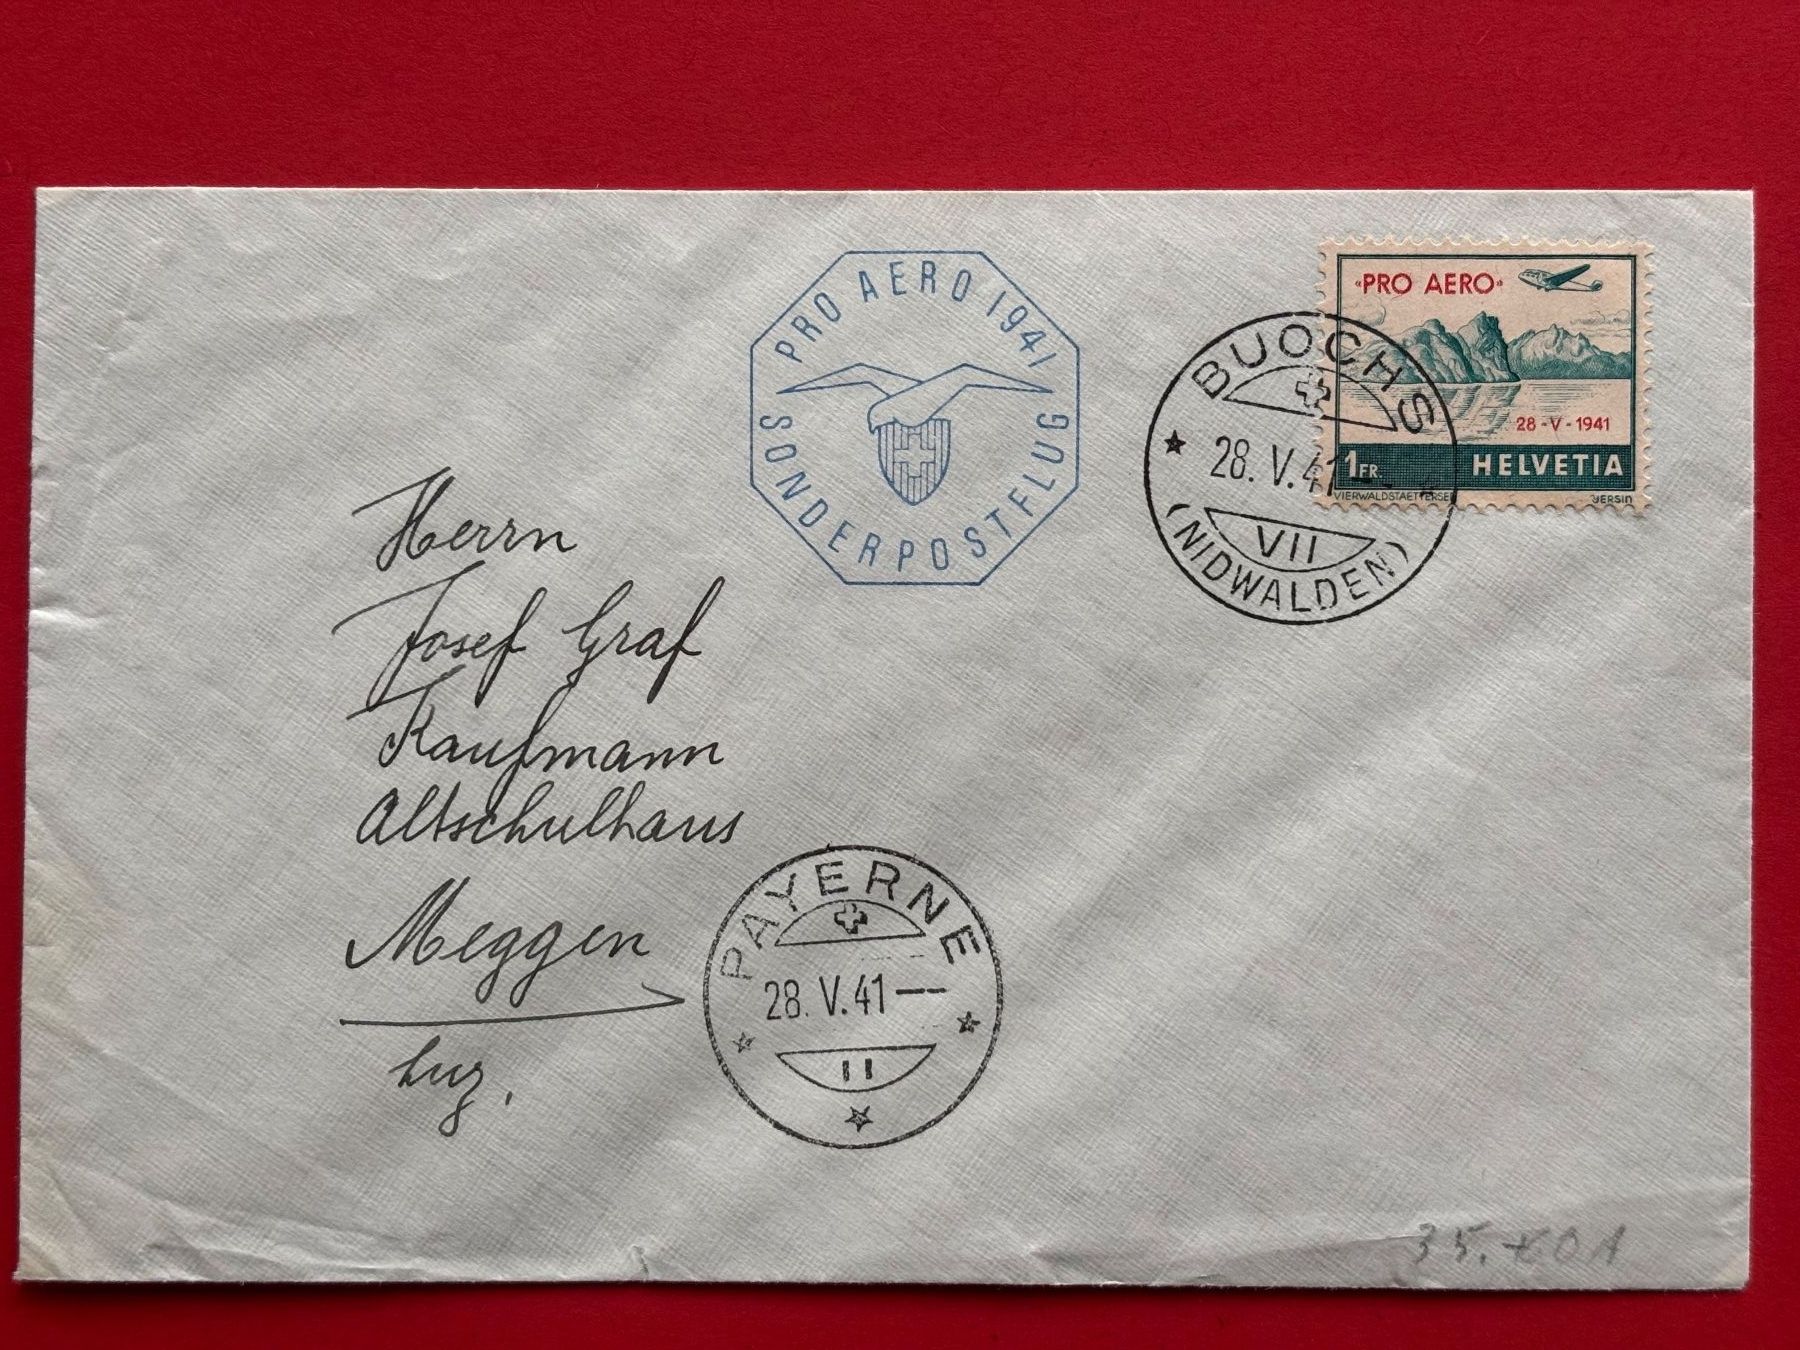 PRO AERO 1941
SONDERPOSTFLUG
«PRO AERO»
28-V-1941
1 FR.
HELVETIA
VIERWALDSTAETTERSEE
YERSIN
BUOCHS
28. V. 41
VII
(NIDWALDEN)
Herrn
Josef Graf
Kaufmann
Altschulhaus
Meggen
Luz.
PAYERNE
28. V. 41
II
35.